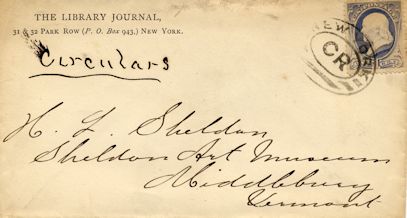 THE LIBRARY JOURNAL,
31 & 32 PARK ROW (P. O. Box 943,) NEW YORK.
Circulars
NEW YORK
CR
H. L. Sheldon
Sheldon Art Museum
Middlebury
Vermont